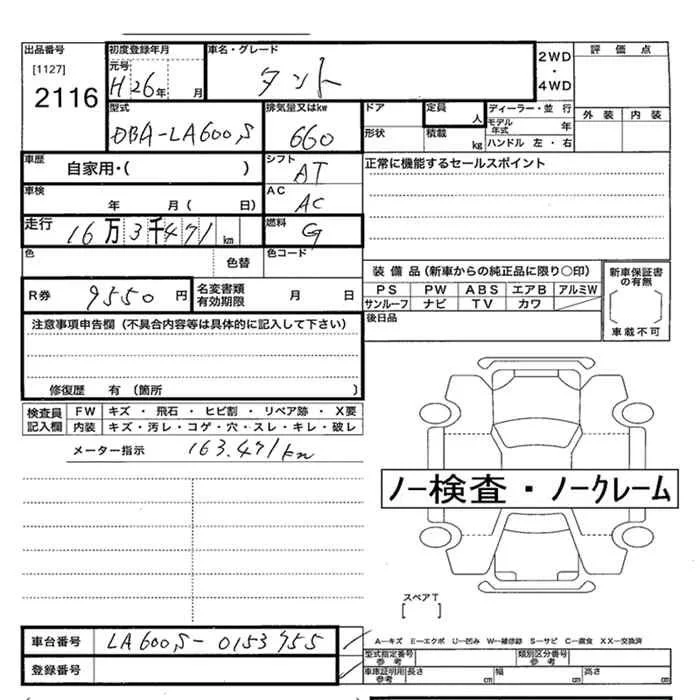 出品番号 初度登録年月 車名・グレード 2WD・4WD 評価点
[1127] 元号 H 26年 月 タント
2116
型式 排気量又はkw ドア 定員 人 ディーラー・並行 外装 内装
DBA-LA600S 660 形状 積載 kg モデル年式 年
ハンドル 左・右
車歴 自家用・( ) シフト AT 正常に機能するセールスポイント
車検 年 月( 日) AC AC
走行 16万3千471km 燃料 G
色 色替 色コード
装備品(新車からの純正品に限り○印) 新車保証書の有無
R券 9550円 名変書類有効期限 月 日 PS PW ABS エアB アルミW
サンルーフ ナビ TV カワ 車載不可
注意事項申告欄(不具合内容等は具体的に記入して下さい) 後日品
修復歴 有(箇所 )
検査員記入欄 FW キズ・飛石・ヒビ割・リペア跡・X要
内装 キズ・汚レ・コゲ・穴・スレ・キレ・破レ
メーター指示 163.471km
ノー検査・ノークレーム
スペアT
[ ]
車台番号 LA600S-0153955 A―キズ E―エクボ U―凹み W―補修跡 S―サビ C―腐食 XX―交換済
型式指定番号参考 類別区分番号参考
登録番号 車庫証明用参考 長さ cm 幅 cm 高さ cm